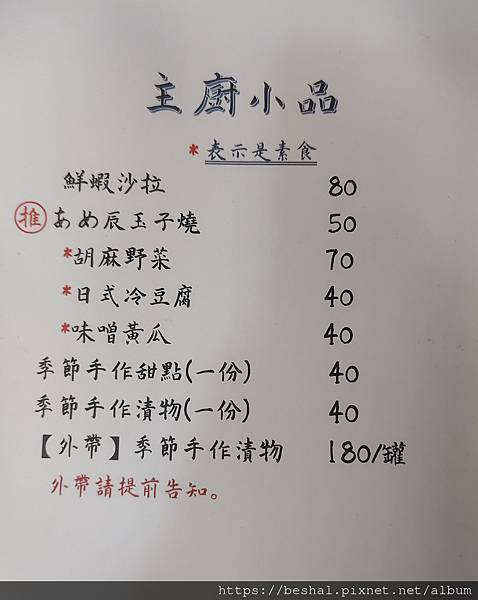 主廚小品
*表示是素食
鮮蝦沙拉 80
推 あめ辰玉子燒 50
*胡麻野菜 70
*日式冷豆腐 40
*味噌黃瓜 40
季節手作甜點(一份) 40
季節手作漬物(一份) 40
【外帶】季節手作漬物 180/罐
外帶請提前告知。
https://beshal.pixnet.net/album